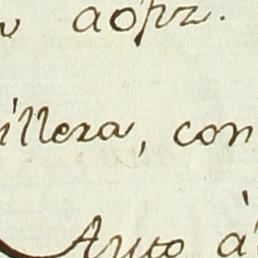 aopz.
illeza, con
Auto à